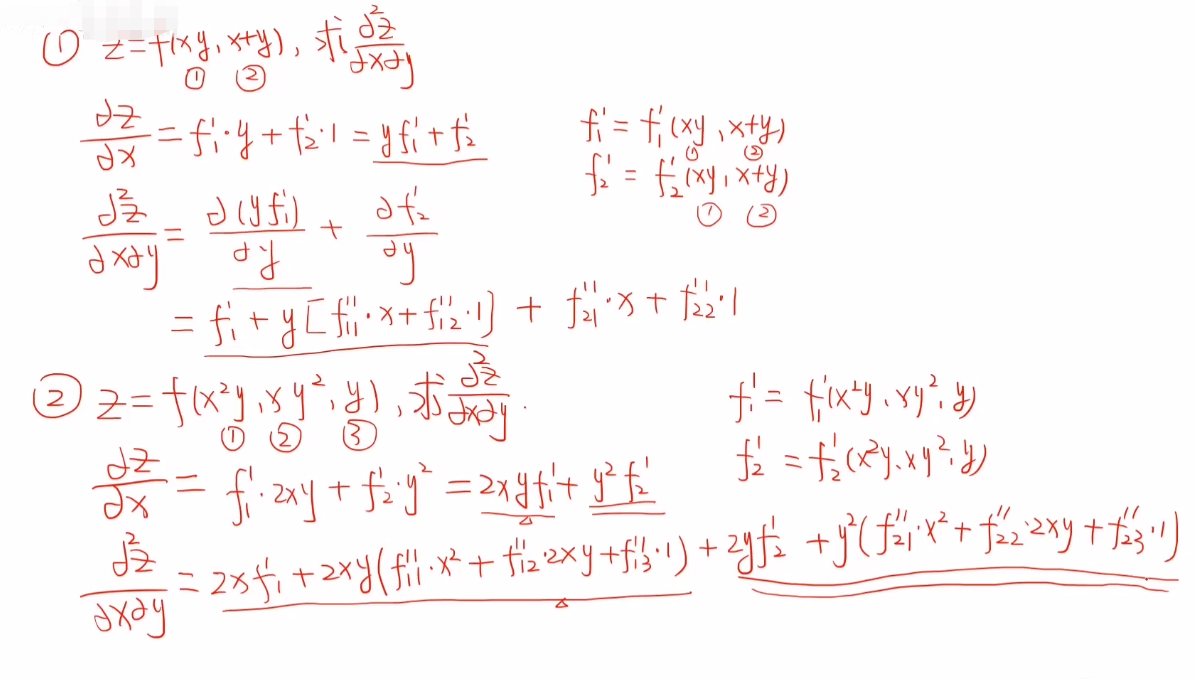 ① z=f(xy, x+y), 求 ∂²z/∂x∂y
① ②
∂z/∂x = f₁'·y + f₂'·1 = yf₁' + f₂'
f₁' = f₁'(xy, x+y)
① ②
f₂' = f₂'(xy, x+y)
① ②
∂²z/∂x∂y = ∂(yf₁')/∂y + ∂f₂'/∂y
= f₁' + y[f₁₁''·x + f₁₂''·1] + f₂₁''·x + f₂₂''·1
② z = f(x²y, xy², y), 求 ∂²z/∂x∂y.
① ② ③
f₁' = f₁'(x²y, xy², y)
f₂' = f₂'(x²y, xy², y)
∂z/∂x = f₁'·2xy + f₂'·y² = 2xyf₁' + y²f₂'
∂²z/∂x∂y = 2xf₁' + 2xy(f₁₁''·x² + f₁₂''·2xy + f₁₃''·1) + 2yf₂' + y²(f₂₁''·x² + f₂₂''·2xy + f₂₃''·1)